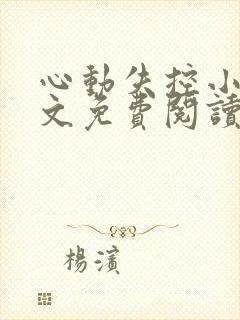 心動失控小
文免費閱讀
楊濱